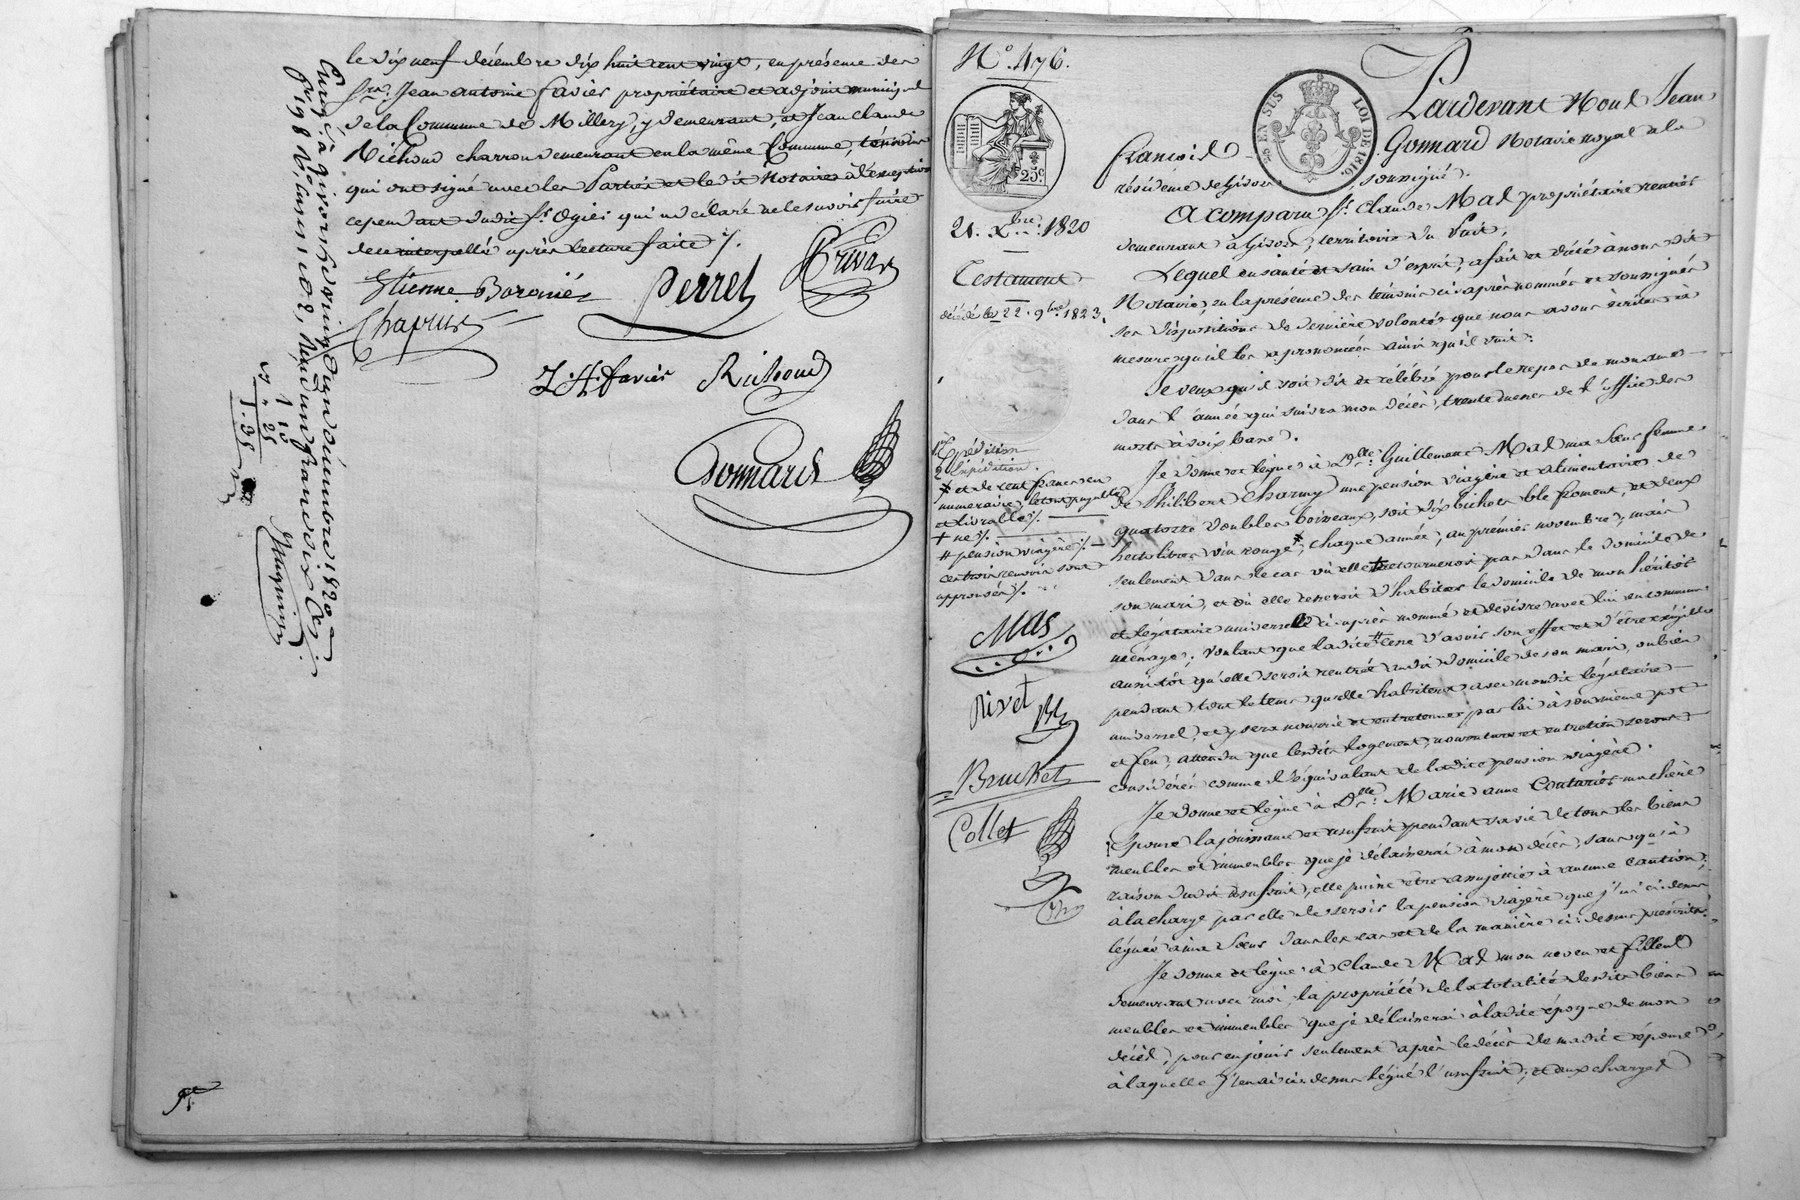 le dix neuf décembre dix huit cent vingt, en présence des
Srs. Jean Antoine Favier propriétaire et adjoint municipal
de la Commune de Millery, y demeurant, et Jean Claude
Richoud charron demeurant en la même Commune, témoins
qui ont signé avec les Parties et le dit Notaire à l'exception
cependant dudit Sr. Ogier qui a déclaré ne le savoir faire
de ce interpellé après lecture faite ./.
Etienne Boromé
Perret
Privas
Chapuis
J. A. Favier Richoud
Gonnard
Enreg.é à Givors le vingt un décembre 1820
fo. 198 Vo, cases 1 et 2, Reçu un franc dix Ces.
1
10
25
1. 35
No. 476.
21. Xbre. 1820
Testament
décédé le 22. 9bre 1823.
1re Expédition
2e Expédition.
# et de cent francs en
numéraire, le tout payable
et livrable ./.
+ ne ./.
# pension viagère ./.
ces trois renvois sont
approuvés ./.
Mas
Rivet
Bruchet
Collet
25c.
25 EN SUS
LOI DE 1816.
Pardevant Nous Jean
François Gonnard Notaire royal à la
résidence de Givors, soussigné.
A comparu Sr. Claude Mas propriétaire rentier
demeurant à Givors, territoire du Fait.
Lequel en santé et sain d'esprit, a fait et dicté à nous dit
Notaire, en la présence des témoins ci-après nommés et soussignés
ses dispositions de dernière volonté que nous avons écrites à
mesure qu'il les a prononcées ainsi qu'il suit:
Je veux qu'il soit dit et célébré pour le repos de mon âme
dans l'année qui suivra mon décès, trente messes de l'office des
morts à voix basse.
Je donne et lègue à Dlle. Guillemette Mas ma Sœur femme
de Philibert Charmy une pension viagère et alimentaire de
quatorze doubles boisseaux, soit dix bichets blé froment, et deux
hectolitres vin rouge #, chaque année, au premier novembre, mais
seulement dans le cas où elle + retourneroit pas dans le domicile de
son mari, et où elle cesseroit d'habiter le domicile de mon héritier
et légataire universelle ci-après nommé et de vivre avec lui en commun
ménage; voulant que ladite # cesse d'avoir son effet et d'être exigible
aussitôt qu'elle seroit rentrée audit domicile de son mari, ou bien
pendant tout le tems qu'elle habitera avec mondit légataire
universel, et y sera nourrie et entretenue par lui à son même pot
et feu; attendu que lesdits logement, nourriture et entretien seront
considérés comme l'équivalent de ladite pension viagère.
Je donne et lègue à De. Marie Anne Couturier ma chère
épouse la jouissance et usufruit pendant sa vie de tous les biens
meubles et immeubles que je délaisserai à mon décès, sans qu'à
raison dudit usufruit, elle puisse être assujettie à aucune caution;
à la charge par elle de servir la pension viagère que j'ai ci-dessus
léguée à ma Sœur dans les cas et de la manière ci-dessus prescrite.
Je donne et lègue à Claude Mas mon neveu et filleul
demeurant avec moi, la propriété de la totalité desdits biens
meubles et immeubles que je délaisserai à ladite époque de mon
décès, pour en jouir seulement après le décès de madite épouse
à laquelle j'en ai ci-dessus légué l'usufruit, et aux charges